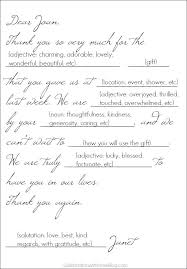 Dear Joan,
Thank you so very much for the
(adjective: charming, adorable, lovely,
wonderful, beautiful etc) (gift)
that you gave us at (location, event, shower, etc)
last week. We are (adjective: overjoyed, thrilled,
touched, overwhelmed, etc)
by your (noun: thoughtfulness, kindness,
generosity, caring, etc) and we
can't wait to (how you will use the gift).
We are truly (adjective: lucky, blessed,
fortunate, etc) to
have you in our lives.
Thank you again.
(salutation: love, best, kind
regards, with gratitude, etc) Janet